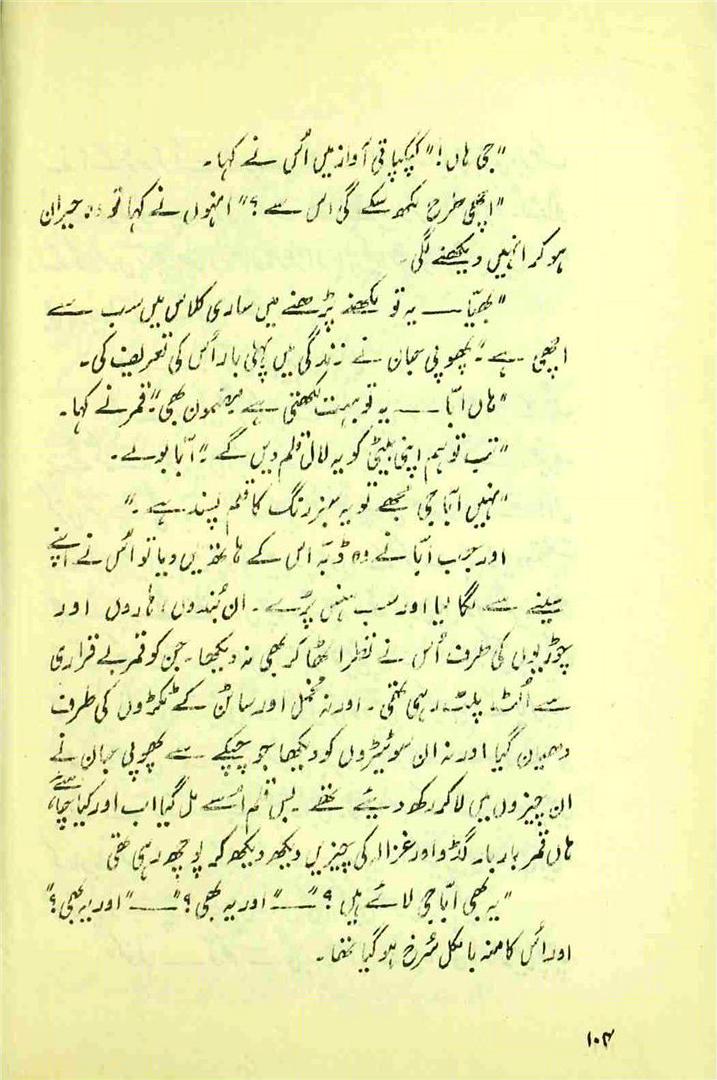 "جی ہاں!" کپکپاتی آواز میں اُس نے کہا۔
"اچھی طرح لکھ سکے گی اس سے؟" انہوں نے کہا تو وہ حیران
ہو کر انہیں دیکھنے لگی۔
"بھیّا — یہ تو لکھنے پڑھنے میں ساری کلاس میں سب سے
اچھی ہے۔" پھوپی جان نے زندگی میں پہلی بار اُس کی تعریف کی۔
"ہاں ابّا — یہ تو بہت لکھتی ہے مضمون بھی" قمر نے کہا۔
"تب تو ہم اپنی بیٹی کو یہ لال قلم دیں گے۔" ابّا بولے۔
"نہیں ابّا جی مجھے تو یہ سبز رنگ کا قلم پسند ہے۔"
اور جب ابّا نے وہ ڈبّہ اس کے ہاتھ میں دیا تو اُس نے اپنے
سینے سے لگا لیا اور سب ہنس پڑے۔ ان بُندوں، ہاروں اور
چوڑیوں کی طرف اُس نے نظر اٹھا کر بھی نہ دیکھا۔ جن کو قمر بے قراری
سے اُلٹ پلٹ رہی تھی۔ اور نہ مخمل اور ساٹن کے ٹکڑوں کی طرف
دھیان گیا اور نہ ان سوئیٹروں کو دیکھا جو چپکے سے پھوپی جان نے
ان چیزوں میں لا کر رکھ دیئے تھے۔ بس قلم اُسے مل گیا اب اور کیا چاہئے،
ہاں قمر بار بار گڈو اور غزالہ کی چیزیں دیکھ دیکھ کر پوچھ رہی تھی
"یہ بھی ابّا جی لائے ہیں؟" — "اور یہ بھی؟" — "اور یہ بھی؟"
اور اُس کا منہ بالکل سُرخ ہو گیا تھا۔
۱۰۴